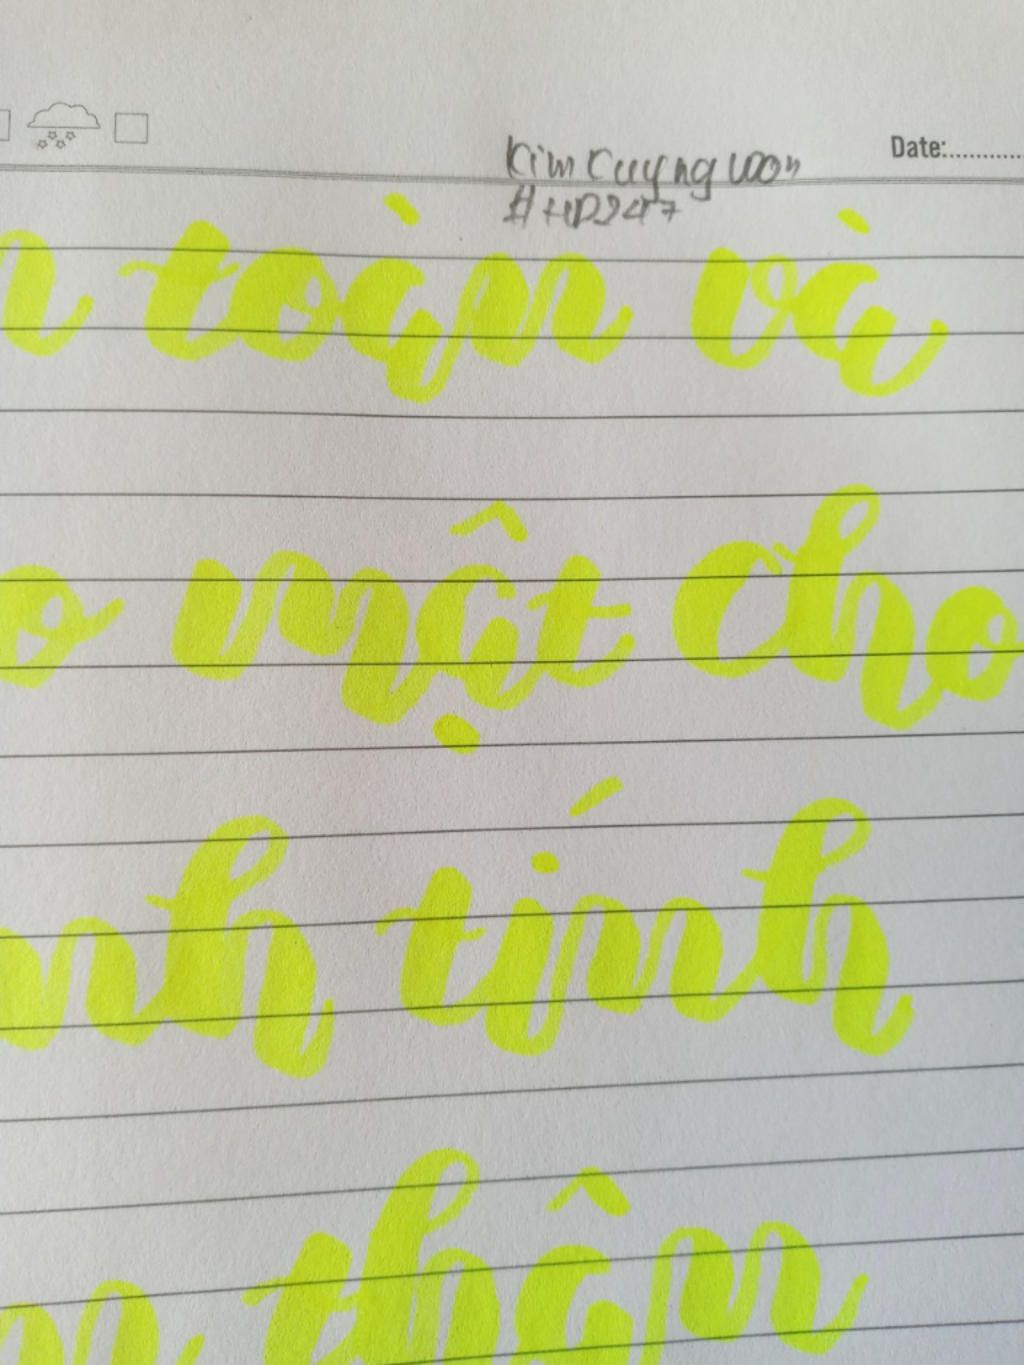 Date:
Kim Kuyng woon
#HD247
n toàn và
o mật cho
nh tính
n thân